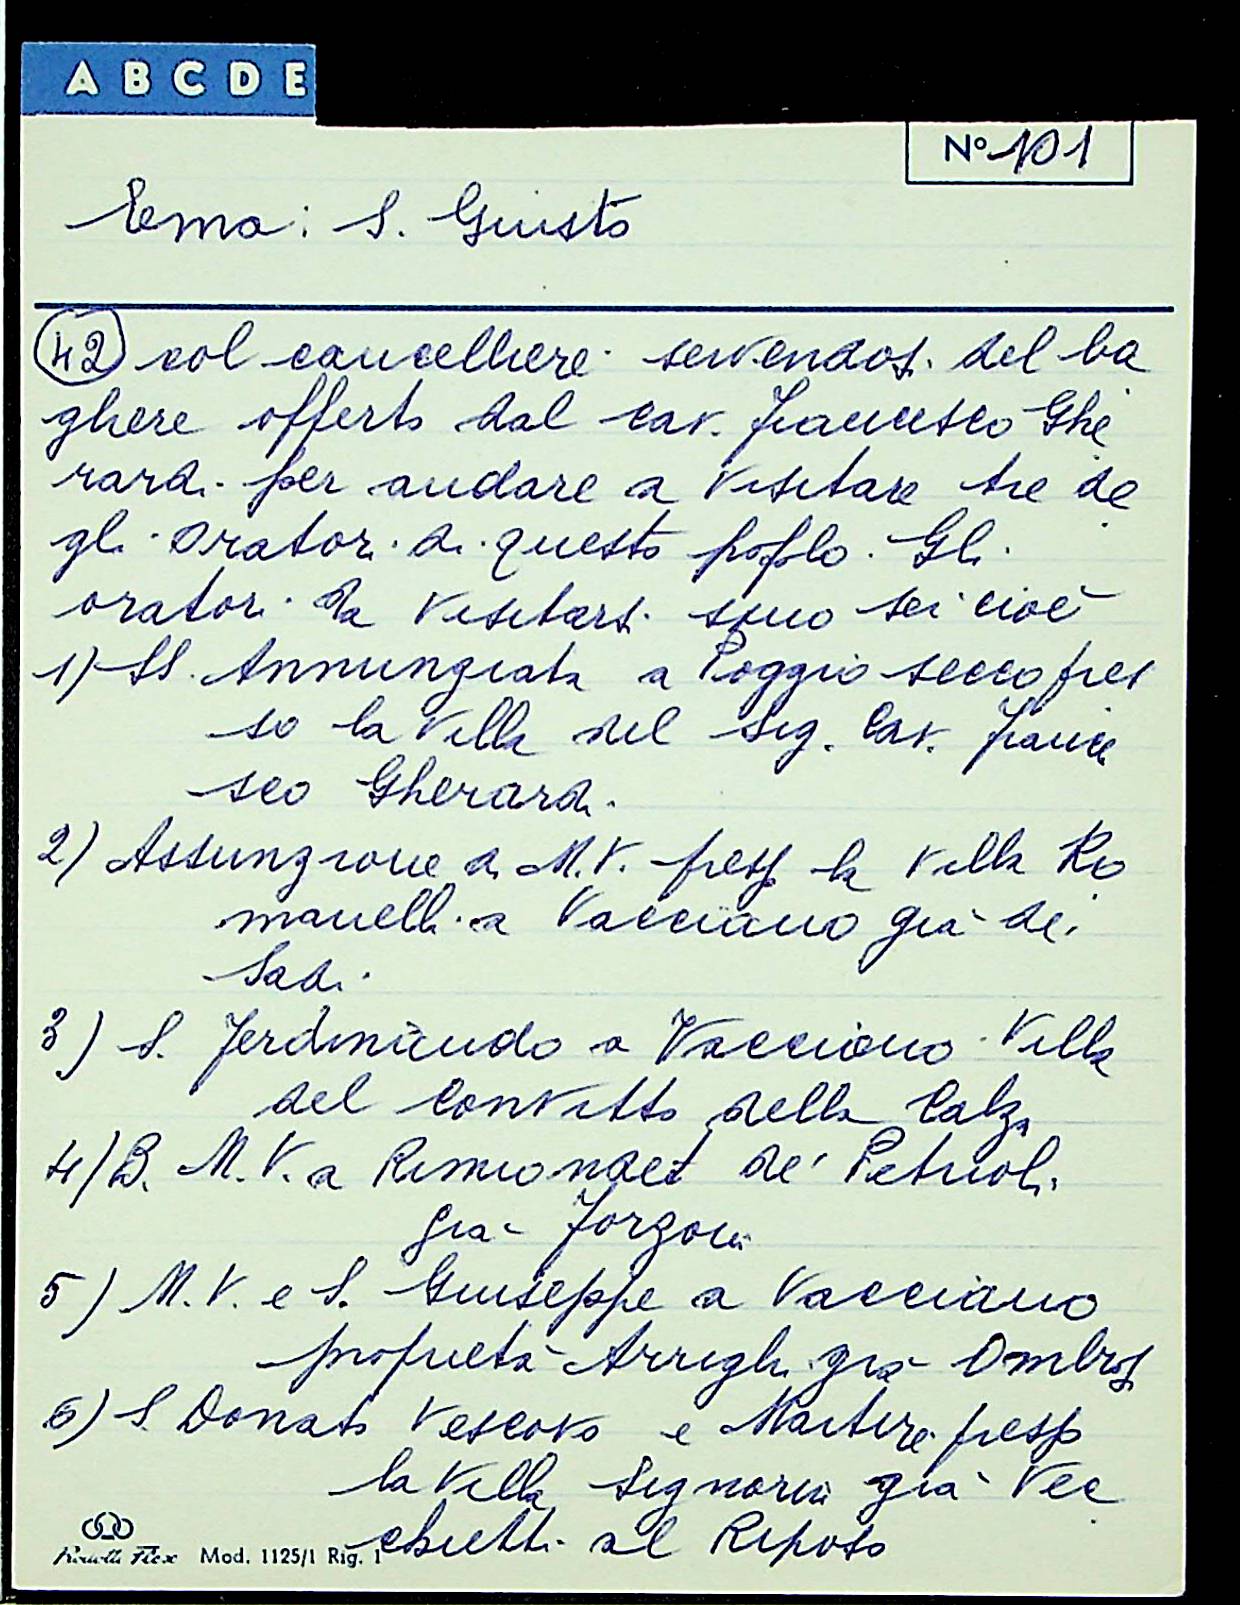 A B C D E
N° 101
Tema: S. Giusto
42 col cancelliere servendosi del ba
ghere offerto dal cav. Francesco Ghe
rardi per andare a visitare tre de
gli oratori di questo popolo. Gli
oratori da visitarsi sono sei cioè
1) SS. Annunziata a Poggio secco pres
so la villa del Sig. Cav. France
sco Gherardi
2) Assunzione di M.V. presso la villa Ro
manelli a Vacciano già dei
Sadi
3) S. Ferdinando a Vacciano Villa
del Convitto della Calza
4) B. M. V. a de' Petrioli
già Forzoni
5) M.V. e S. Giuseppe a Vacciano
proprietà Arrighi già Ombrosi
6) S. Donato Vescovo e Martire presso
la villa Signorini già Vec
chietti al Riposo
Mod. 1125/1 Rig. 1